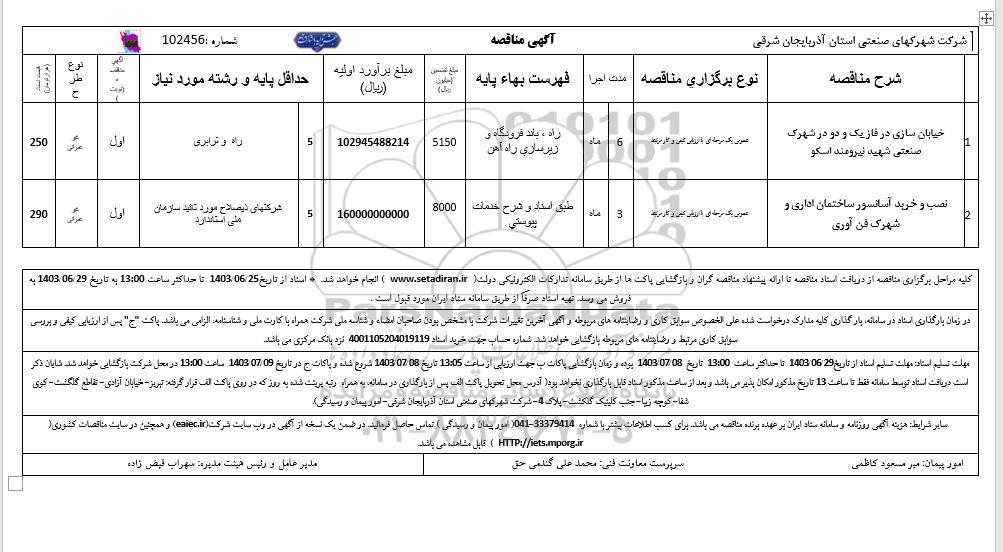 شرکت شهرکهای صنعتی استان آذربایجان شرقی
آگهی مناقصه
شماره :102456
شرح مناقصه
نوع برگزاري مناقصه
مدت اجرا
فهرست بهاء پایه
مبلغ تضمین (میلیون ریال)
مبلغ برآورد اولیه (ریال)
حداقل پایه و رشته مورد نیاز
آگهي مناقصه (نوبت)
نوع طرح
قیمت اسناد (هزارتومان)
1
خیابان سازی در فاز یک و دو در شهرک صنعتی شهید نیرومند اسکو
عمومی یک مرحله ای با ارزیابی کیفی و کار مرتبط
6
ماه
راه ، باند فرودگاه و زیرسازي راه آهن
5150
102945488214
5
راه و ترابری
اول
غیر عمرانی
250
2
نصب و خرید آسانسور ساختمان اداری و شهرک فن آوری
عمومی یک مرحله ای با ارزیابی کیفی و کار مرتبط
3
ماه
طبق اسناد و شرح خدمات پیوستي
8000
160000000000
5
شرکتهای ذیصلاح مورد تائید سازمان ملی استاندارد
اول
غیر عمرانی
290
کلیه مراحل برگزاری مناقصه از دریافت اسناد مناقصه تا ارائه پیشنهاد مناقصه گران و بازگشایی پاکت ها از طریق سامانه تدارکات الکترونیکی دولت( www.setadiran.ir ) انجام خواهد شد. * اسناد از تاریخ1403/06/25 تا حداکثر ساعت 13:00 به تاریخ 1403/06/29 به
فروش می رسد. تهیه اسناد صرفاً از طریق سامانه ستاد ایران مورد قبول است .
در زمان بارگذاری اسناد در سامانه، بار گذاری کلیه مدارک درخواست شده علی الخصوص سوابق کاری و رضایتنامه های مربوطه و آگهی آخرین تغییرات شرکت با مشخص بودن صاحبان امضاء و شناسه ملی شرکت همراه با کارت ملی و شناسنامه، الزامی می باشد. پاکت "ج" پس از ارزیابی کیفی و بررسی
سوابق کاری مرتبط و رضایتنامه های مربوطه بازگشایی خواهد شد. شماره حساب جهت خرید اسناد 4001105204019119 نزد بانک مرکزی می باشد.
مهلت تسلیم اسناد: مهلت تسلیم اسناد از تاریخ1403/06/29 تا حداکثر ساعت 13:00 تاریخ 1403/07/08 بوده و زمان بازگشایی پاکات ب جهت ارزیابی از ساعت 13:05 تاریخ 1403/07/08 شروع شده و پاکات ج در تاریخ 1403/07/09 ساعت 13:00 در محل شرکت بازگشایی خواهد شد. شایان ذکر
است دریافت اسناد توسط سامانه فقط تا ساعت 13 تاریخ مذکور امکان پذیر می باشد و بعد از ساعت مذکور اسناد قابل بارگذاری نخواهد بود( آدرس محل تحویل پاکت الف پس از بارگذاری در سامانه، به همراه رتبه پرینت شده به روز که در روی پاکت الف قرار گرفته: تبریز-خیابان آزادی- تقاطع گلگشت-کوی
شفا-کوچه زیبا-جنب کلینیک گلگشت-پلاک 4-شرکت شهرکهای صنعتی استان آذربایجان شرقی-امور پیمان و رسیدگی).
سایر شرایط: هزینه آگهی روزنامه و سامانه ستاد ایران بر عهده برنده مناقصه می باشد. برای کسب اطلاعات بیشتر با شماره 33379414-041( امور پیمان و رسیدگی ) تماس حاصل فرمائید. در ضمن یک نسخه از آگهی در وب سایت شرکت(eaiec.ir) و همچنین در سایت مناقصات کشوری(
HTTP://iets.mporg.ir ) قابل مشاهده می باشد.
امور پیمان: میر مسعود کاظمی
سرپرست معاونت فنی: محمد علی گندمی حق
مدیر عامل و رئیس هیئت مدیره: سهراب فیض زاده